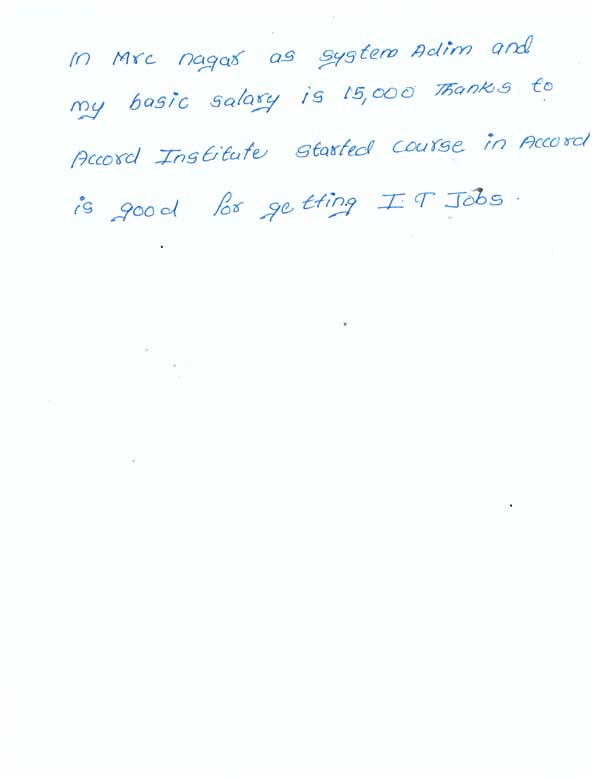 In Mrc nagar as system Adim and
my basic salary is 15,000 Thanks to
Accord Institute started course in Accord
is good for getting I.T Jobs.